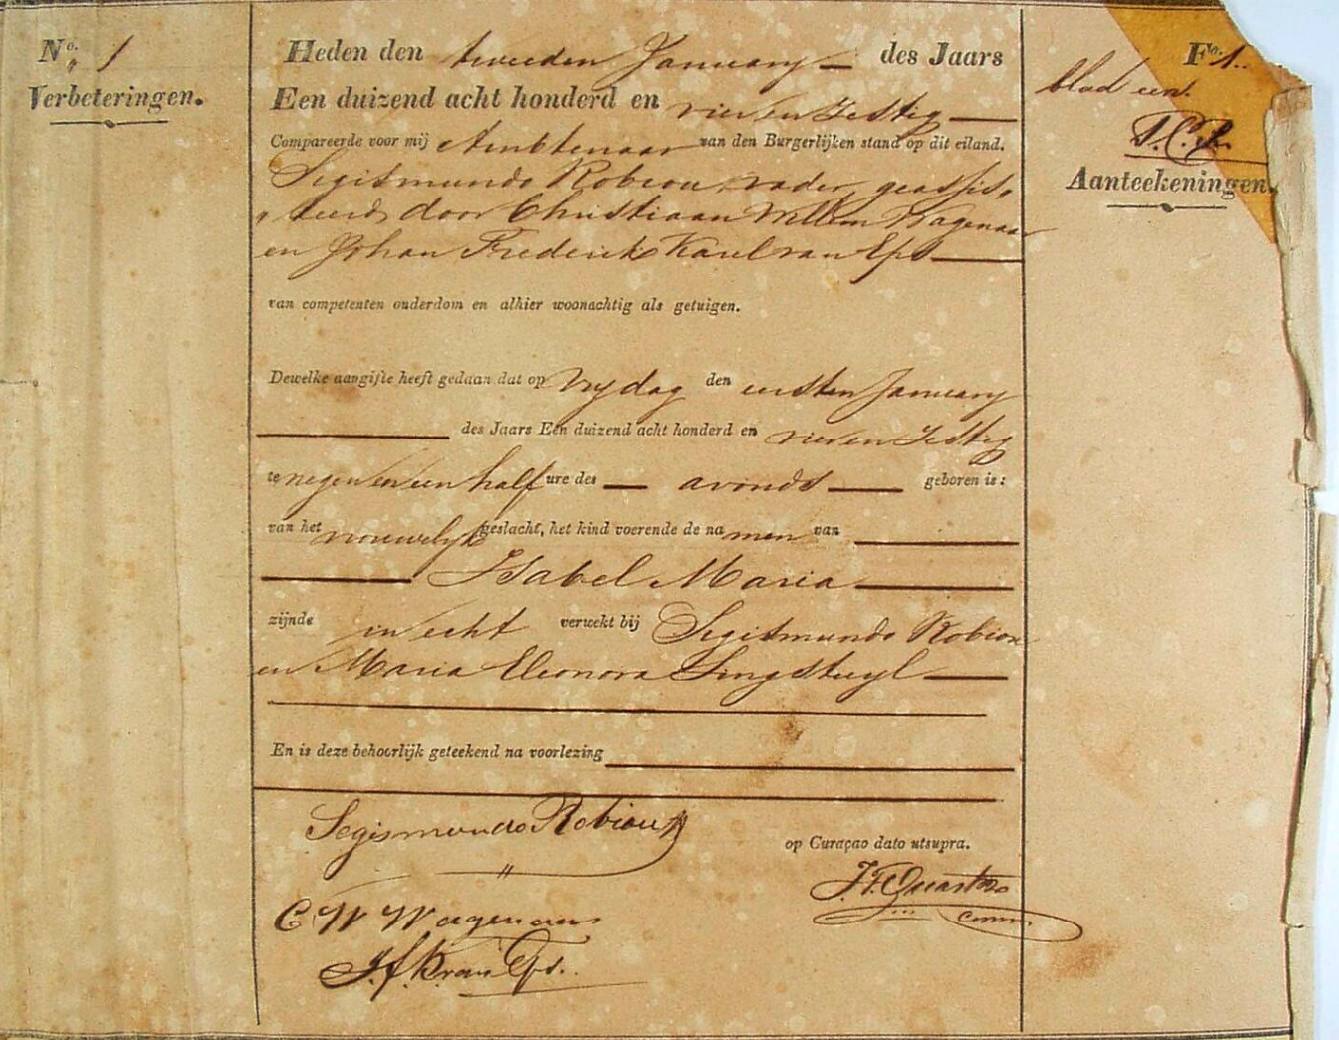 No. 1
Verbeteringen.
Heden den tweeden January des Jaars
Een duizend acht honderd en vier en zestig
Compareerde voor mij Ambtenaar van den Burgerlijken stand op dit eiland.
Segismundo Robiou, vader, geassis„
„teerd door Christiaan Willem Wagenaar
en Johan Frederik Karel van Eps
van competenten ouderdom en alhier woonachtig als getuigen.
Dewelke aangifte heeft gedaan dat op Vrydag den eersten January
des Jaars Een duizend acht honderd en vier en zestig
te negen en een half ure des avonds geboren is:
van het vrouwelyk geslacht, het kind voerende de namen van
Isabel Maria
zijnde in echt verwekt bij Segismundo Robiou
en Maria Eleonora Lingstuyl
En is deze behoorlijk geteekend na voorlezing
Segismundo Robiou
op Curaçao dato utsupra.
C W Wagenaar
J. f. K van Eps.
Fo. 1.
blad een.
Aanteekeningen.